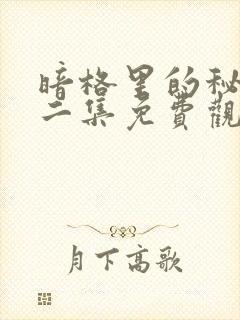 暗格里的秘
二集免費觀
月下高歌